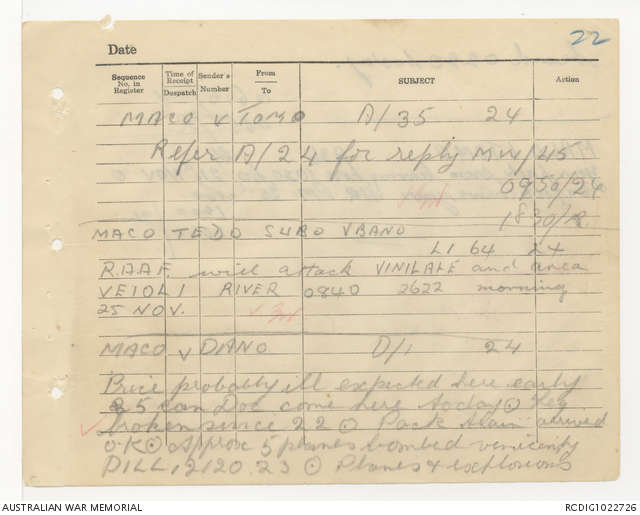 22
Date
Sequence No. in Register Time of Receipt Despatch Sender's Number From To SUBJECT Action
MACO v TOMO A/35 24
Refer A/24 for reply MW/45
0950/24
1830/R.
MACO TEDO SUBO V BANO
LI 64 24
R.A.A.F. will attack VINILALE and area
VEIOLI RIVER 0840 2622 morning
25 NOV.
MACO v DANO D/1 24
Brice probably ill expected here early
25 can Doc come here today ⊙ Key
broken since 22 ⊙ Pack train arrived
O.K ⊙ Approx 5 planes bombed
DILL, 2120.23 ⊙ Planes & explosions
AUSTRALIAN WAR MEMORIAL RCDIG1022726